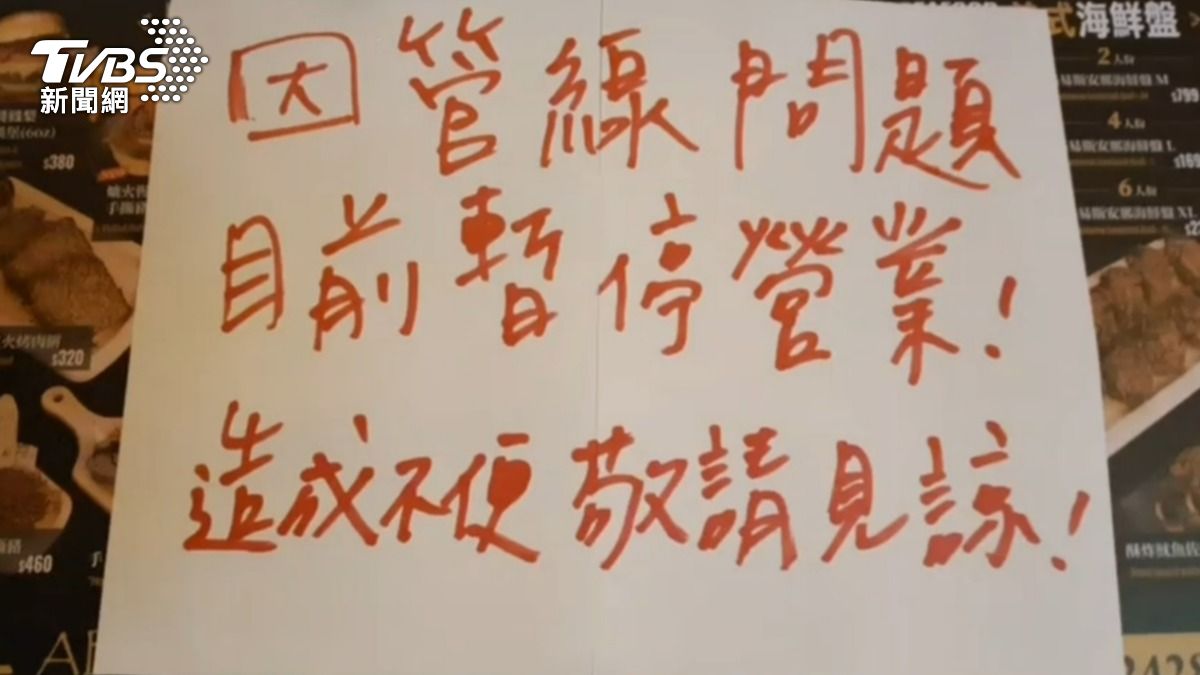 TVBS
新聞網
因管線問題
目前暫停營業!
造成不便 敬請見諒!
式海鮮盤
2人份
$799
4人份
6人份
$380
$320
$460
手